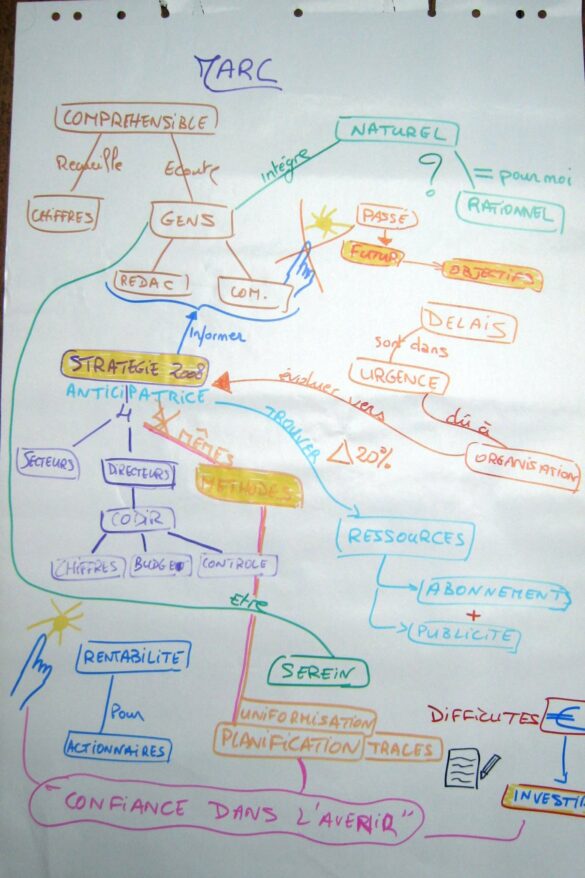 MARC
COMPREHENSIBLE
NATUREL
Recueille
Ecoute
Intègre
?
= pour moi
RATIONNEL
CHIFFRES
GENS
PASSÉ
FUTUR
OBJECTIFS
REDAC
COM.
Informer
DELAIS
sont dans
URGENCE
STRATEGIE 2008
ANTICIPATRICE
4
évoluer vers
dû à
ORGANISATION
TROUVER
△ 20%
MÊMES
METHODES
SECTEURS
DIRECTEURS
CODIR
CHIFFRES
BUDGET
CONTROLE
RESSOURCES
ABONNEMENT
+
PUBLICITÉ
Etre
SEREIN
RENTABILITÉ
Pour
ACTIONNAIRES
UNIFORMISATION
PLANIFICATION
TRACES
DIFFICUTES
€
INVESTIR
"CONFIANCE DANS L'AVENIR"